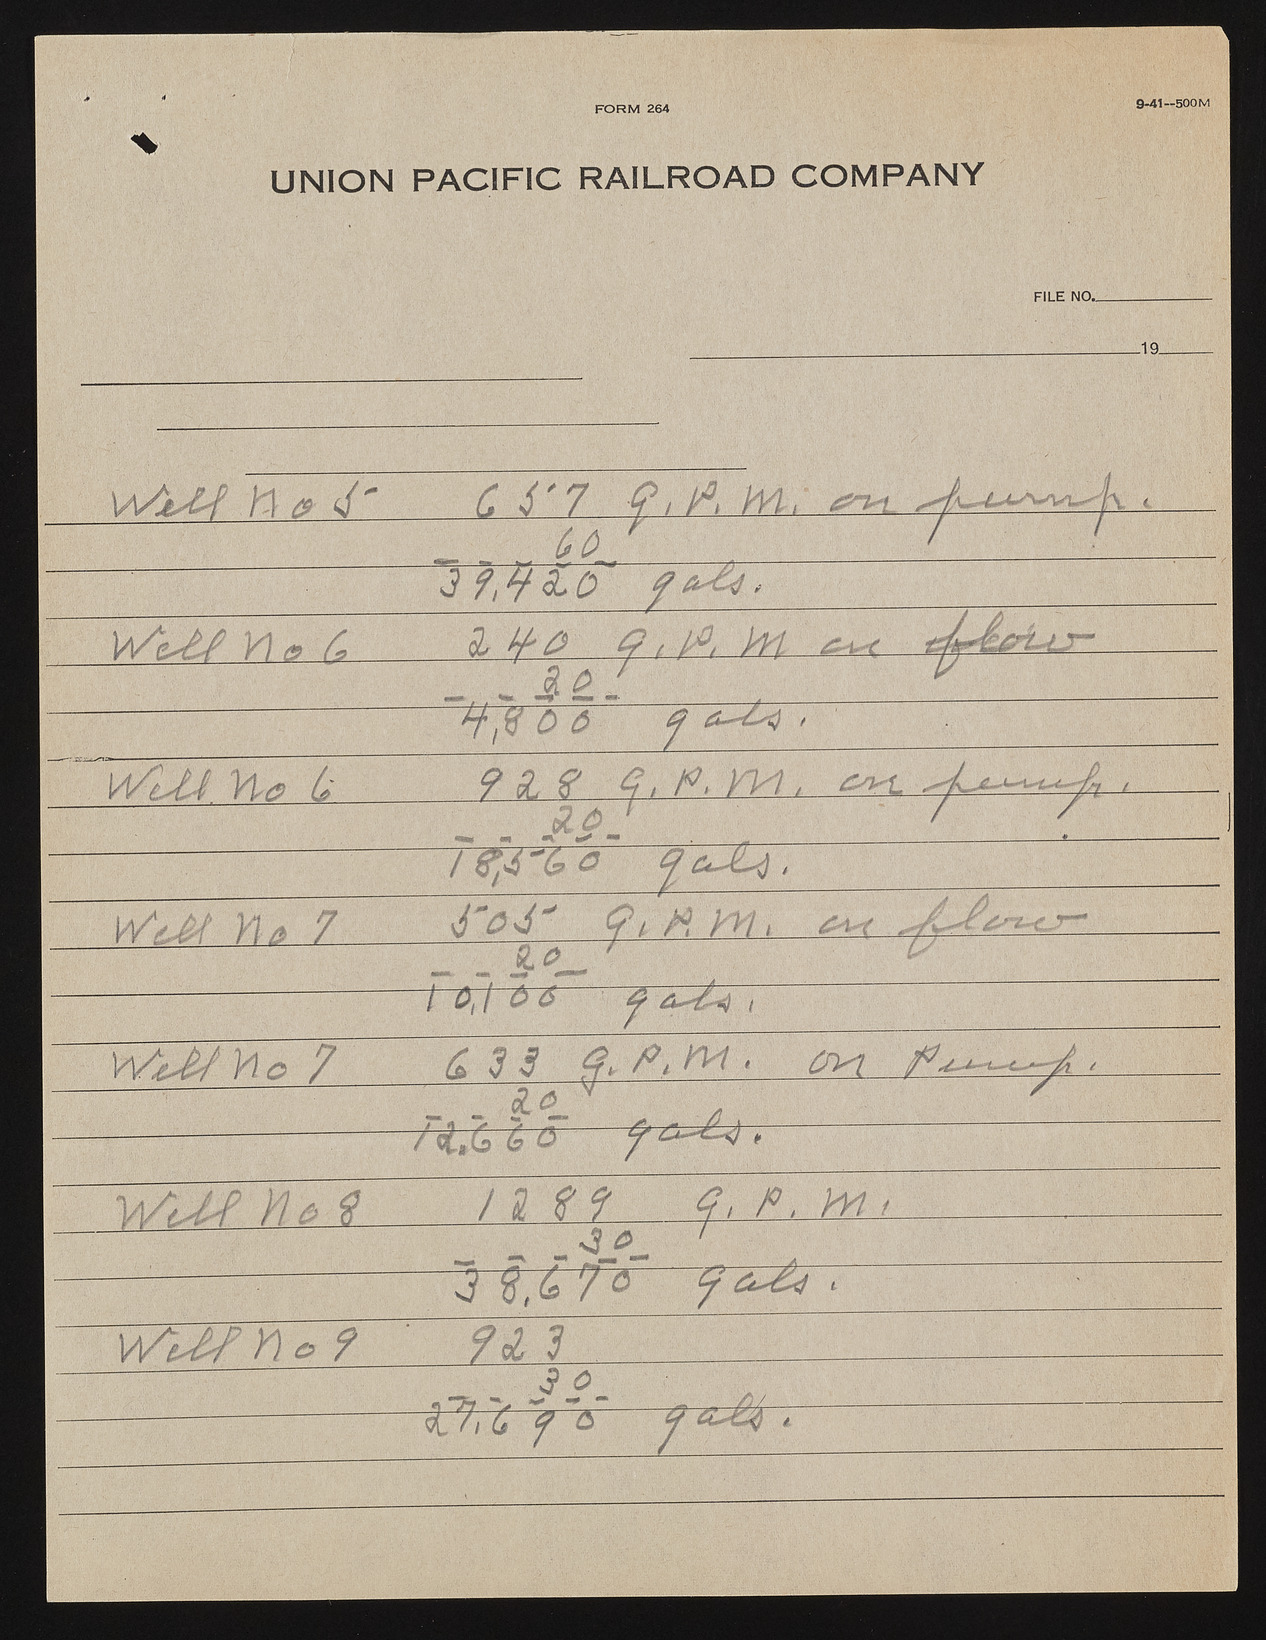 FORM 264
9-41--500M
UNION PACIFIC RAILROAD COMPANY
FILE NO.
19
Well No 5 657 G.P.M. on pump.
60
39,420 gals.
Well No 6 240 G.P.M on flow
20
4,800 gals.
Well No 6 928 G.P.M. on pump.
20
18,560 gals.
Well No 7 505 G.P.M. on flow
20
10,100 gals.
Well No 7 633 G.P.M. on Pump.
20
12,660 gals.
Well No 8 1289 G.P.M.
30
38,670 gals.
Well No 9 923
30
27,690 gals.